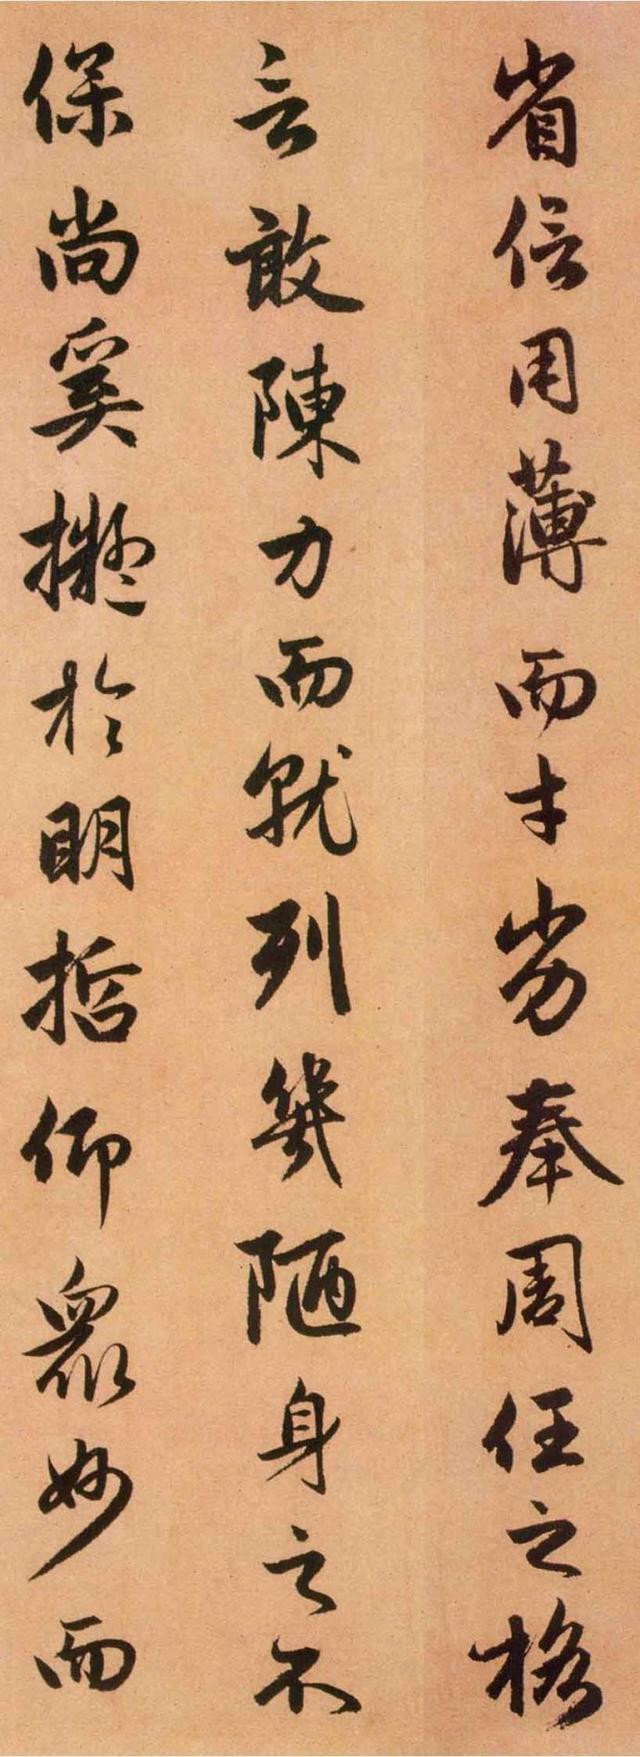 省信用薄而才劣奉周任之格
言敢陳力而就列幾陋身之不
保尚奚擬於明哲仰衆妙而